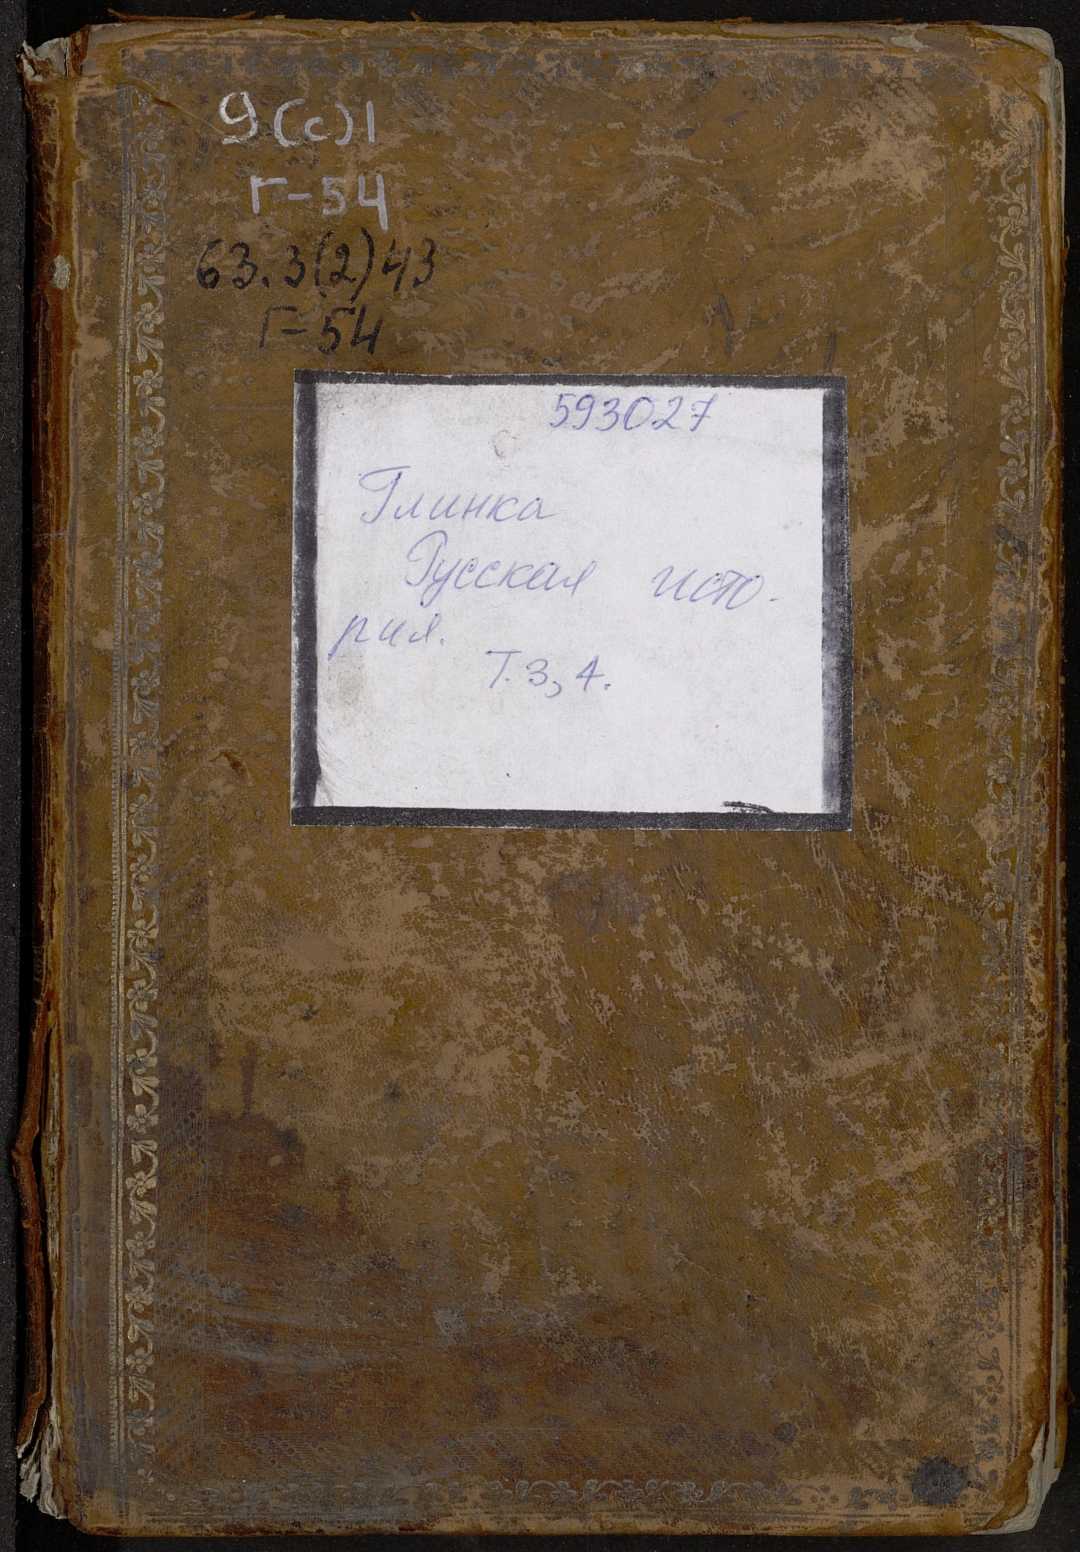 9(с)1
Г-54
63.3(2)43
Г-54
593027
Глинка
Русская исто-
рия.
Т. 3, 4.